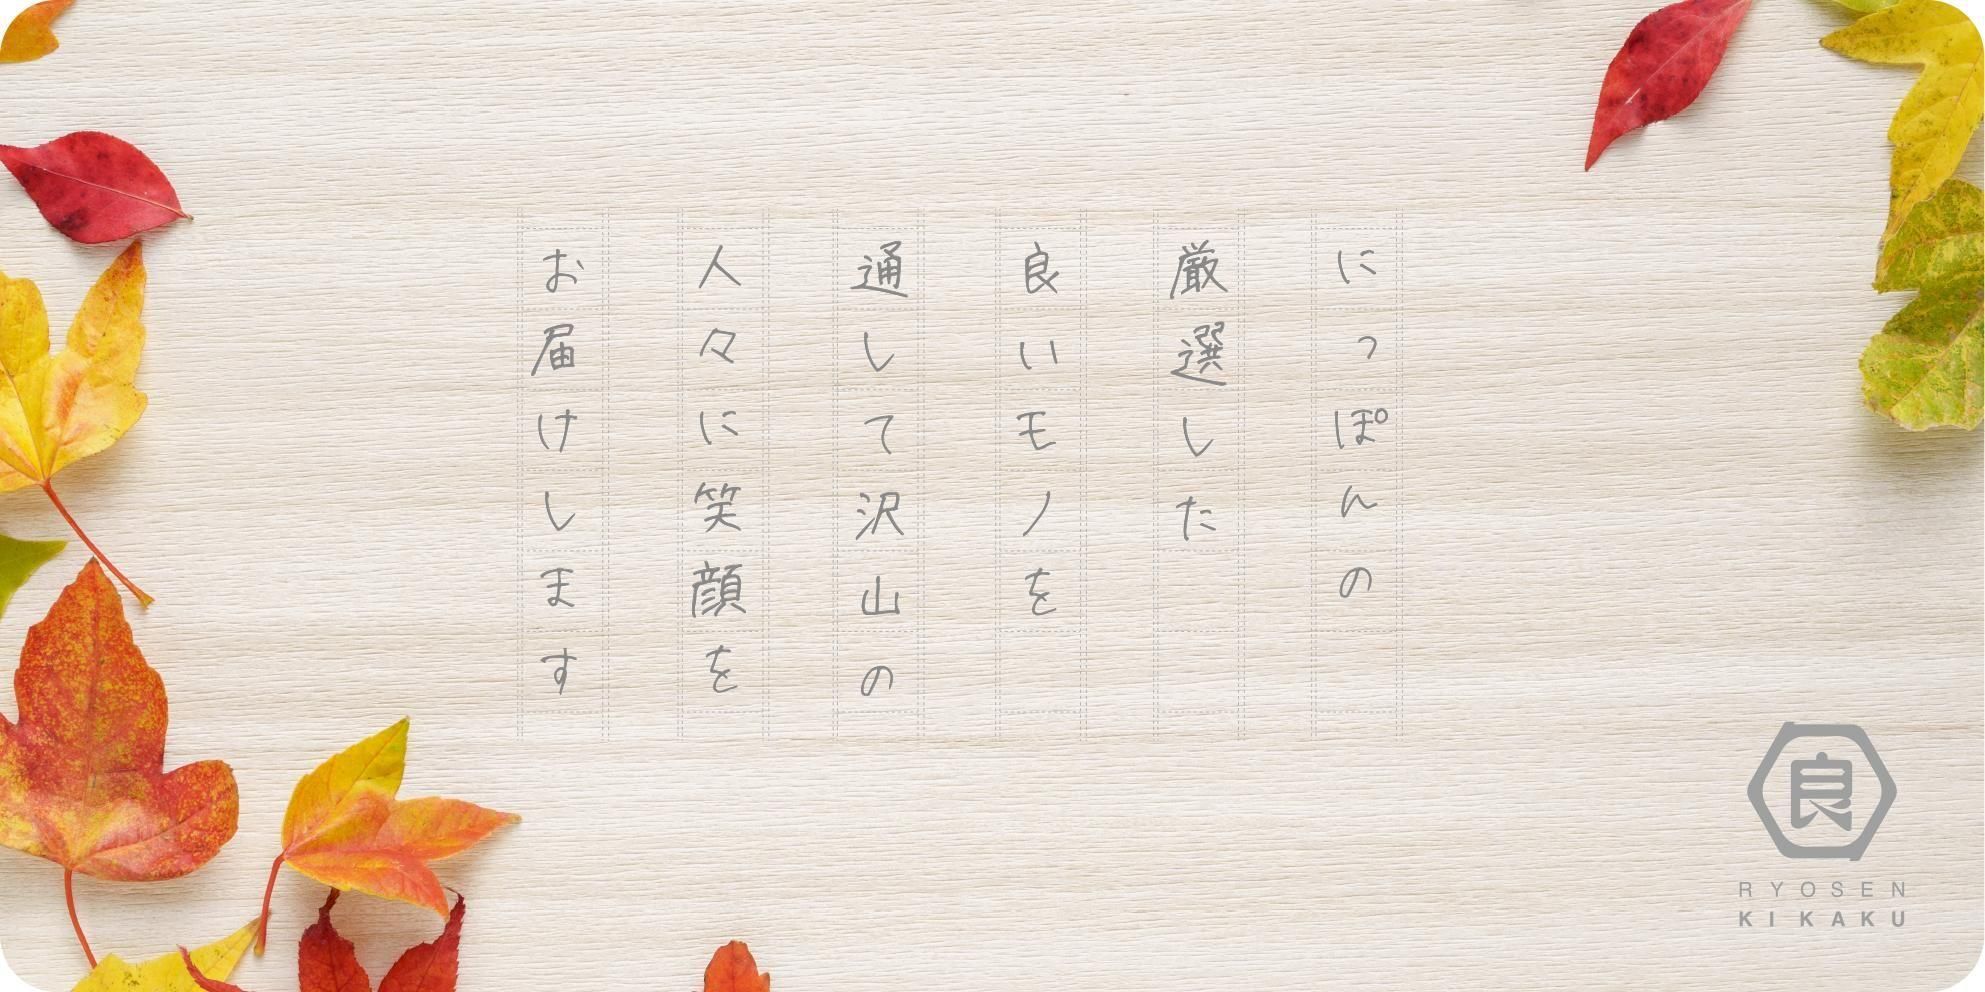 にっぽんの
厳選した
良いモノを
通して沢山の
人々に笑顔を
お届けします
良
RYOSEN
KIKAKU